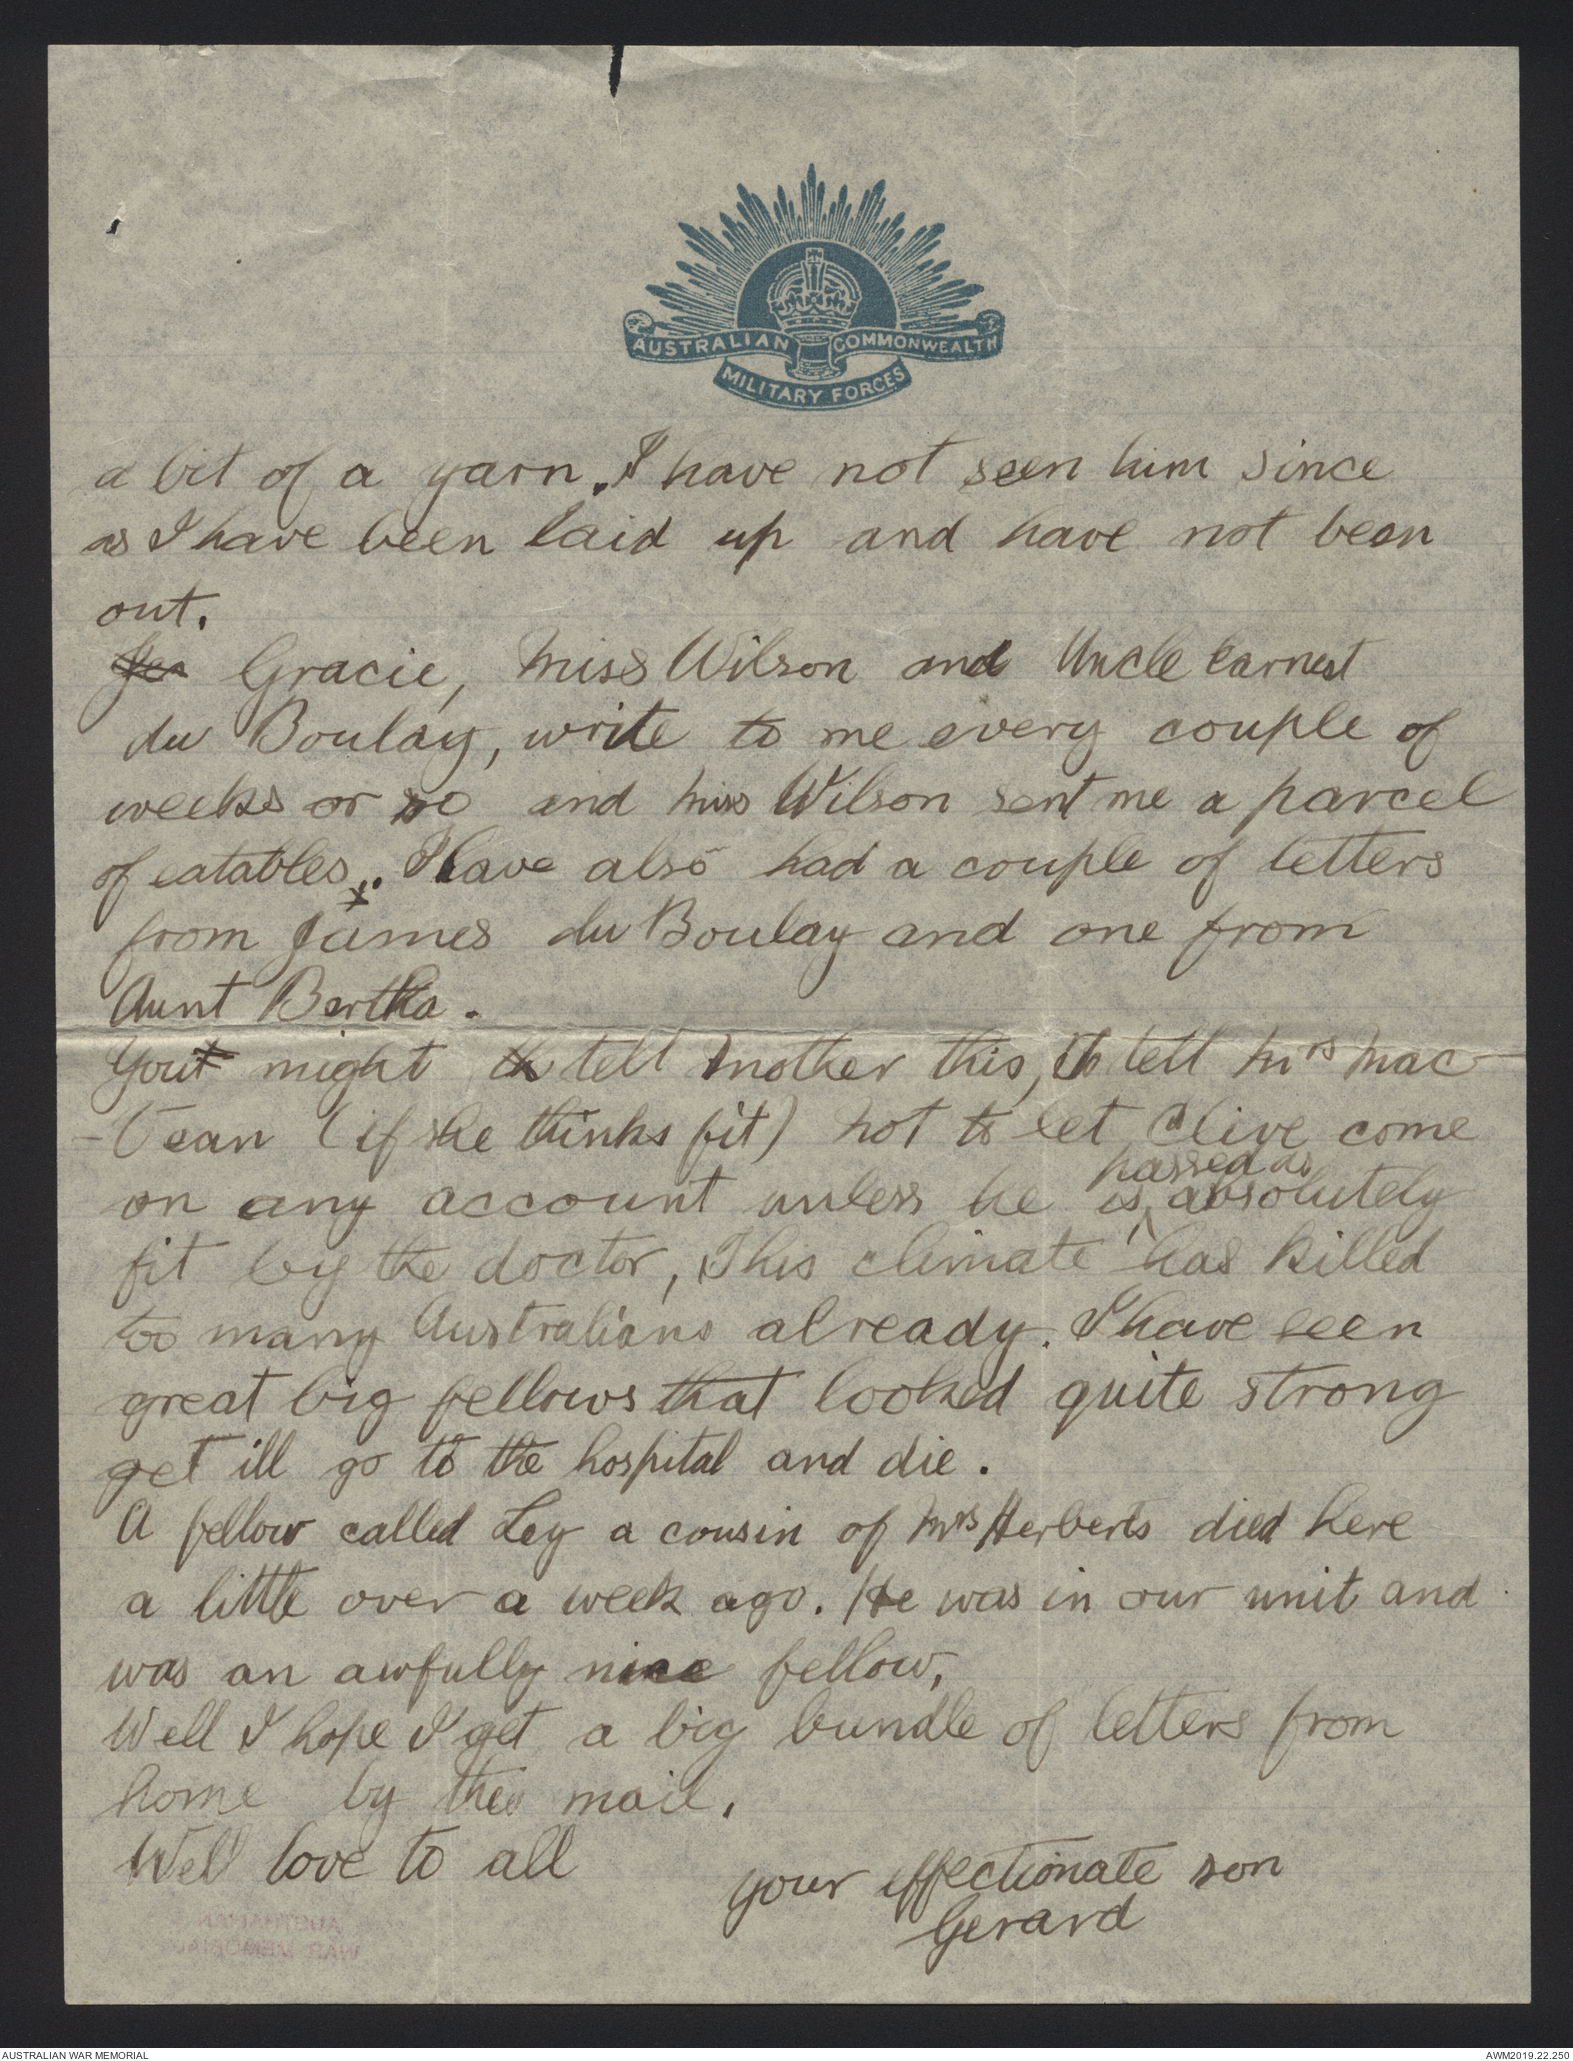 AUSTRALIAN COMMONWEALTH
MILITARY FORCES
a bit of a yarn. I have not seen him since
as I have been laid up and have not been
out.
Gracie, Miss Wilson and Uncle Earnest
du Boulay, write to me every couple of
weeks or so and Miss Wilson sent me a parcel
of eatables. I have also had a couple of letters
from James du Boulay and one from
Aunt Bertha.
You might tell Mother this, to tell Mrs Mac-
-Vean (if she thinks fit) not to let Clive come
on any account unless he is passed as absolutely
fit by the doctor, This climate has killed
too many Australians already. I have seen
great big fellows that looked quite strong
get ill go to the hospital and die.
A fellow called Ley a cousin of Mrs Herberts died here
a little over a week ago. He was in our unit and
was an awfully nice fellow,
Well I hope I get a big bundle of letters from
home by this mail.
Well love to all
your effectionate son
Gerard
AUSTRALIAN
WAR MEMORIAL
AUSTRALIAN WAR MEMORIAL
AWM2019.22.250